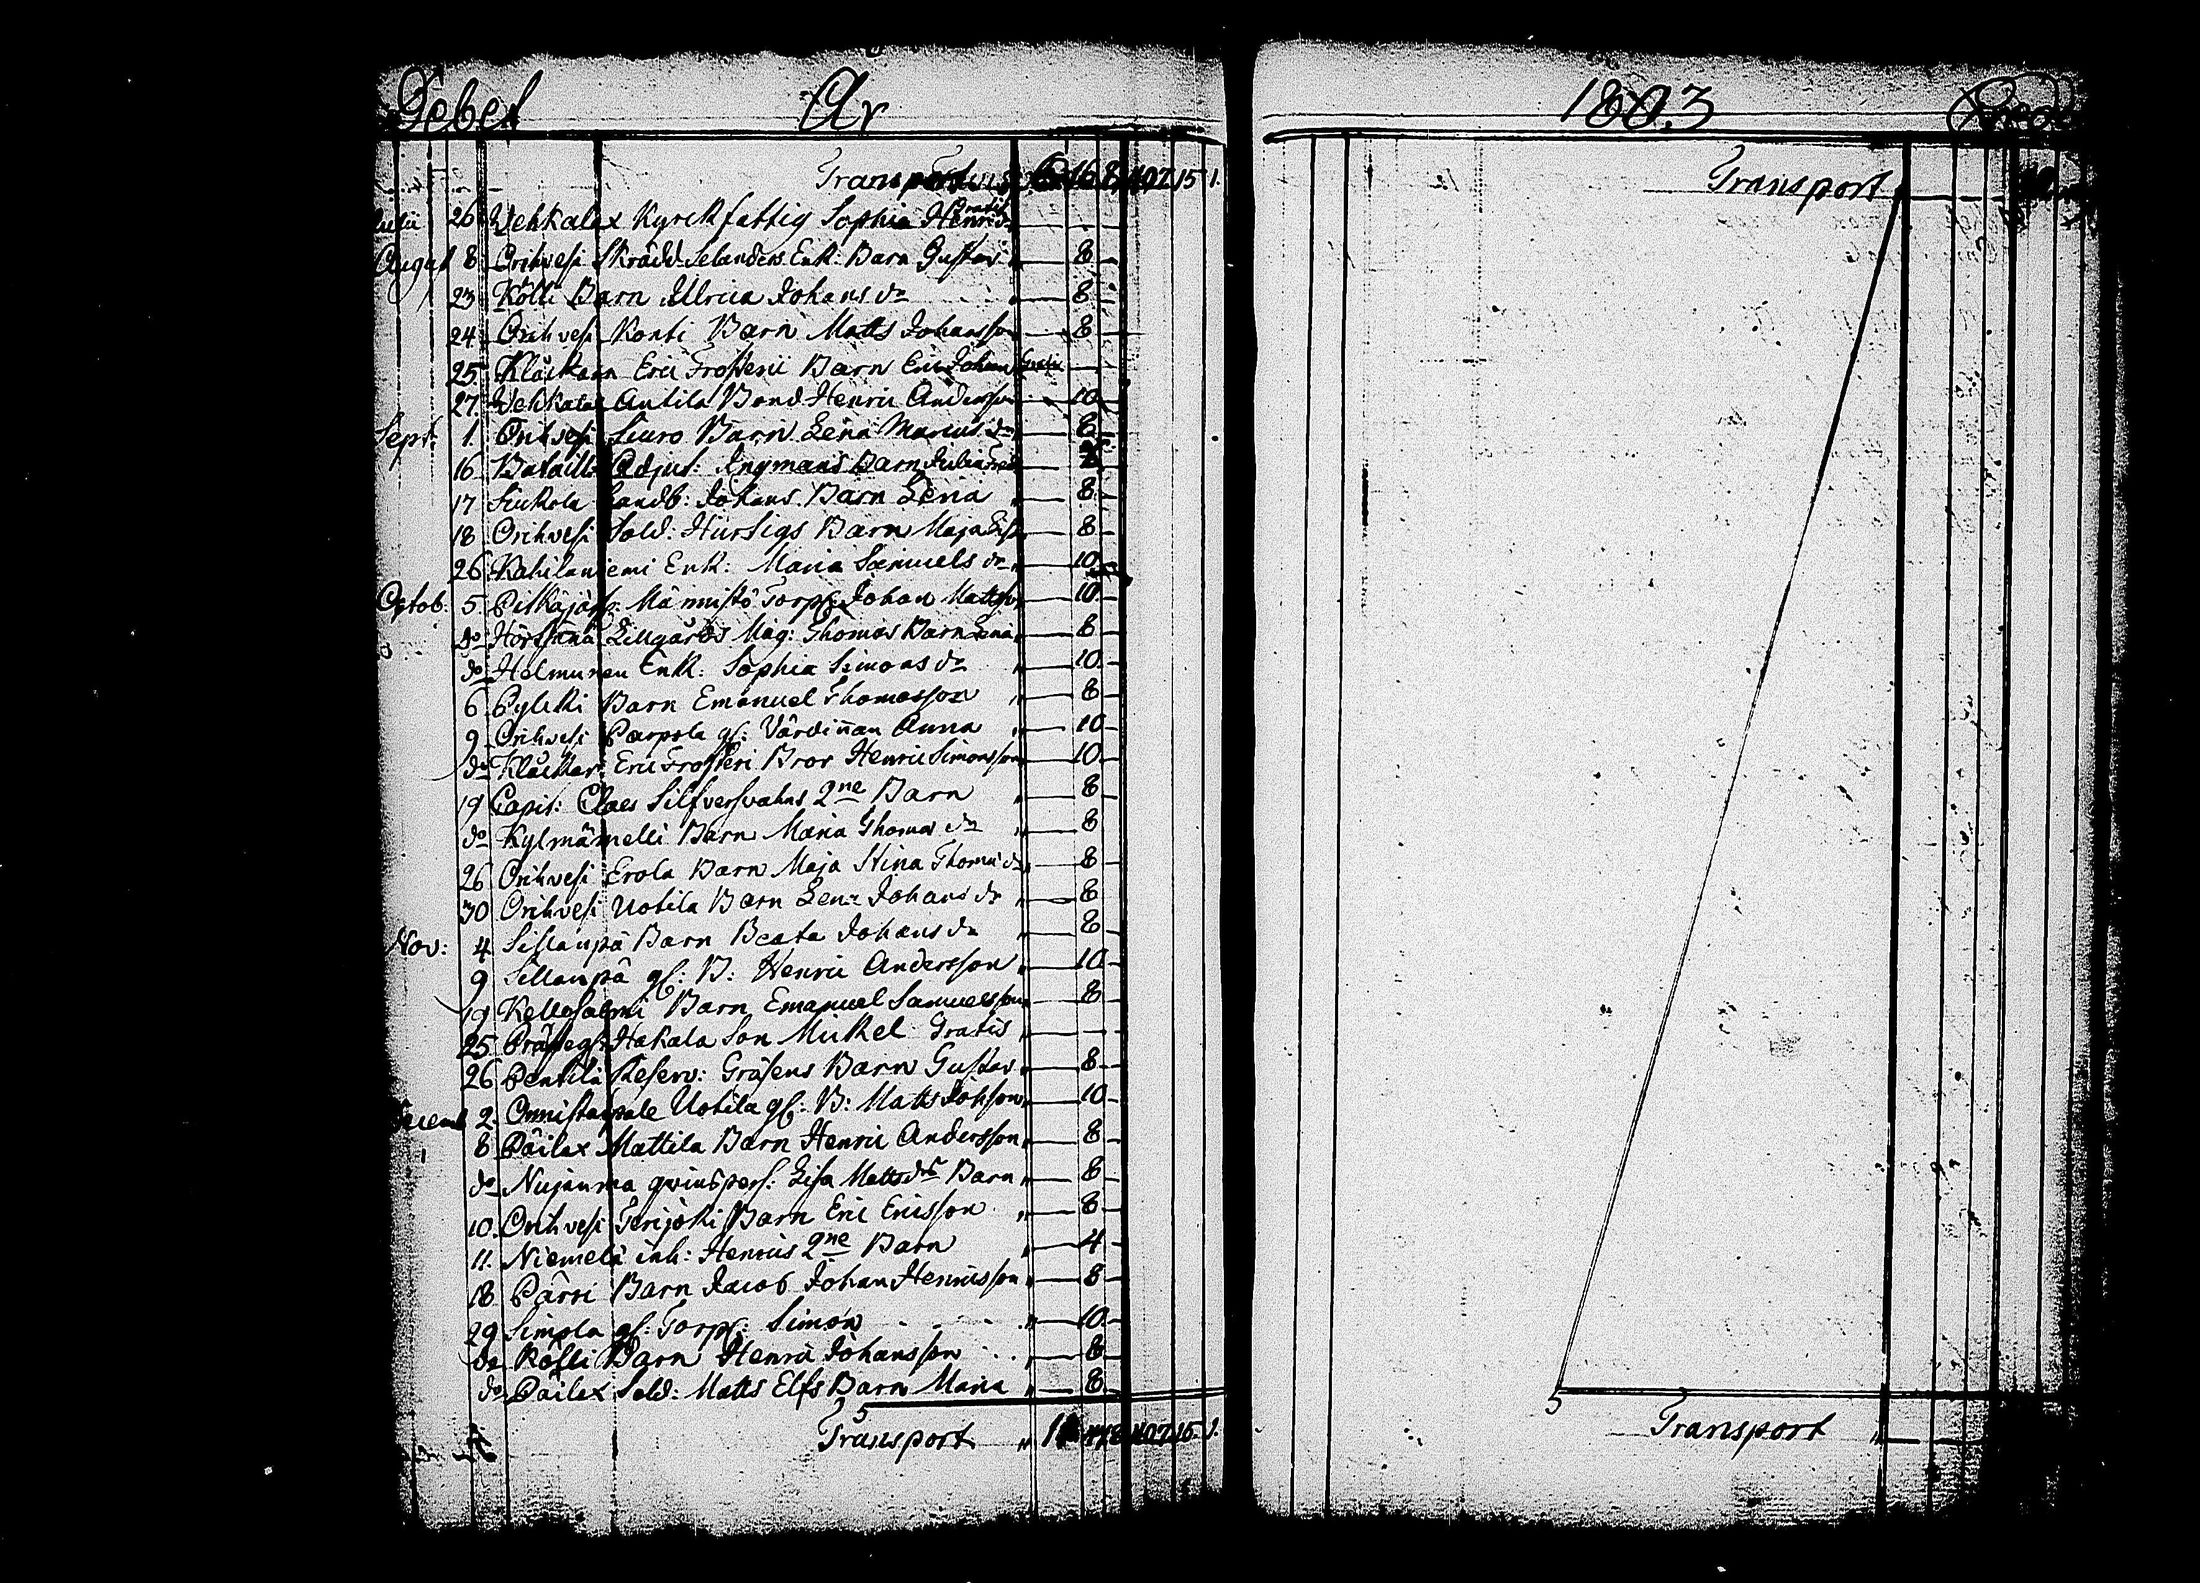 Debet År
Transport 6 16 8 407 15 1.
Julii 26 Vehkalax Kyrckfattig Sophia Henrics dr Gratis
August 8 Orihvesi Skrädd. Selanders Enk: Barn Gustav 8
23 Kölli Barn Ulrica Johans dr 8
24 Orihvesi Konti Barn Matts Johansson 8
25 Kläckaren Erici Frosterii Barn Eric Johan Gratis
27 Vehkalax Antila Bond. Henric Andersson 10
Sept: 1. Orihvesi Suuro Barn Lena Marcus dr 8
16 Bataill: Adjut: Ingmans Barn Julia
17 Kukola Landb: Johans Barn Lena 8
18 Orihvesi Sold: Hurtigs Barn Maja Lisa 8
26 Kahilaniemi Enk: Maria Samuels dr 10
Octob: 5 Pitkäjärf: Männistö Torp: Johan Mattsson 10
do Hörtsänä Lillgårds Måg: Thomas Barn Lena 8
do Helmunen Enk: Sophia Simons dr 10
6 Pylkki Barn Emanuel Thomasson 8
9 Orihvesi Parpola gl: Värdinnan Anna 10
do Kläckar: Eric Frosteri Bror Henric Simonsson 10
19 Capit: Claes Silfversvahns 2ne Barn 8
do Kylmämelli Barn Maria Thomas dr 8
26 Orihvesi Erola Barn Maja Stina Thomas dr 8
30 Orihvesi Uotila Barn Lena Johans dr 8
Nov: 4 Sillanpä Barn Beata Johans dr 8
9 Sillanpä gl: B: Henric Andersson 10
19 Kellosalmi Barn Emanuel Samuelsson 8
25 Prästegl: Hakala Son Mickel Gratis
26 Pentilä Reserv: Gräsens Barn Gustav 8
Decemb 2. Onnistaipale Uotila gl: B: Matts Johsson 10
8 Päilax Mattila Barn Henric Andersson 8
do Nujanma qvinspers: Lisa Mattsdrs Barn 8
10. Orihvesi Terijoki Barn Eric Ericsson 8
11. Niemelä inh: Henrics 2ne Barn 4
18 Pärri Barn Jacob Johan Henricsson 8
29 Simola gl: Torp: Simon 10
do Kölli Barn Henric Johansson 8
do Päilax Sold: Matts Elfs Barn Maria 8
Transport 407 15 1.
1803
Transport
Transport